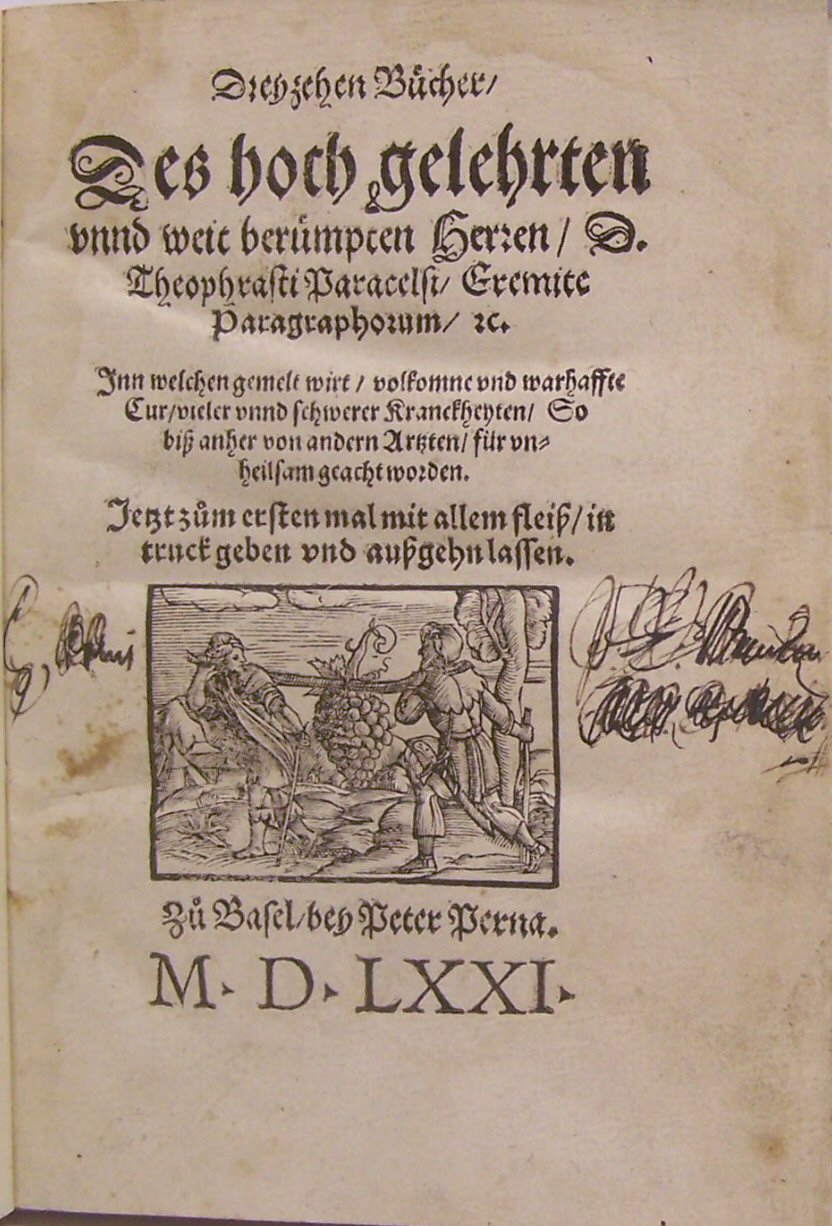 Dreyzehen Bůcher/
Des hoch gelehrten
vnnd weit berůmpten Herren/ D.
Theophrasti Paracelsi/ Eremite
Paragraphorum/ ꝛc.
Inn welchen gemelt wirt / volkomne vnd warhaffte
Cur/vieler vnnd schwerer Kranckheyten/ So
biß anher von andern Artzten/ für vn⸗
heilsam geacht worden.
Jetzt zům ersten mal mit allem fleiß/ in
truck geben vnd außgehn lassen.
Zů Basel/bey Peter Perna.
M. D. LXXI.